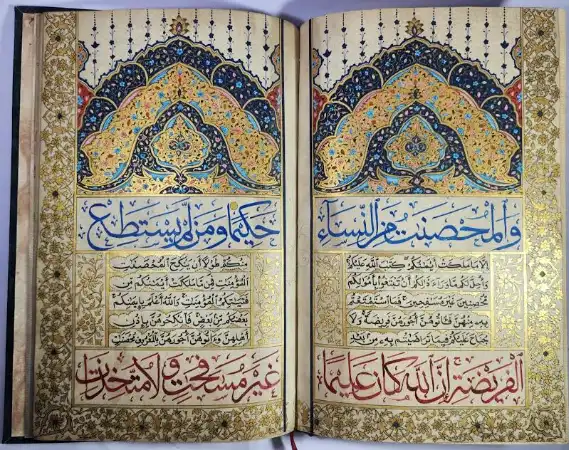 وَالْمُحْصَنٰتُ مِنَ النِّسَآءِ
اِلَّا مَا مَلَكَتْ اَيْمٰنُكُمْ كِتٰبَ اللّٰهِ عَلَيْكُمْ
وَاُحِلَّ لَكُمْ مَا وَرَآءَ ذٰلِكُمْ اَنْ تَبْتَغُوا بِاَمْوٰلِكُمْ
مُحْصِنِينَ غَيْرَ مُسٰفِحِينَ فَمَا اسْتَمْتَعْتُمْ
بِهِ مِنْهُنَّ فَاٰتُوهُنَّ اُجُورَهُنَّ فَرِيضَةً وَلَا
جُنَاحَ عَلَيْكُمْ فِيمَا تَرٰضَيْتُمْ بِهِ مِنْ بَعْدِ
الْفَرِيضَةِ اِنَّ اللّٰهَ كَانَ عَلِيمًا
حَكِيمًا وَمَنْ لَمْ يَسْتَطِعْ
مِنْكُمْ طَوْلًا اَنْ يَنْكِحَ الْمُحْصَنٰتِ
الْمُؤْمِنٰتِ فَمِنْ مَا مَلَكَتْ اَيْمٰنُكُمْ مِنْ
فَتَيٰتِكُمُ الْمُؤْمِنٰتِ وَاللّٰهُ اَعْلَمُ بِاِيمٰنِكُمْ
بَعْضُكُمْ مِنْ بَعْضٍ فَانْكِحُوهُنَّ بِاِذْنِ
اَهْلِهِنَّ وَاٰتُوهُنَّ اُجُورَهُنَّ بِالْمَعْرُوفِ مُحْصَنٰتٍ
غَيْرَ مُسٰفِحٰتٍ وَلَا مُتَّخِذٰتِ